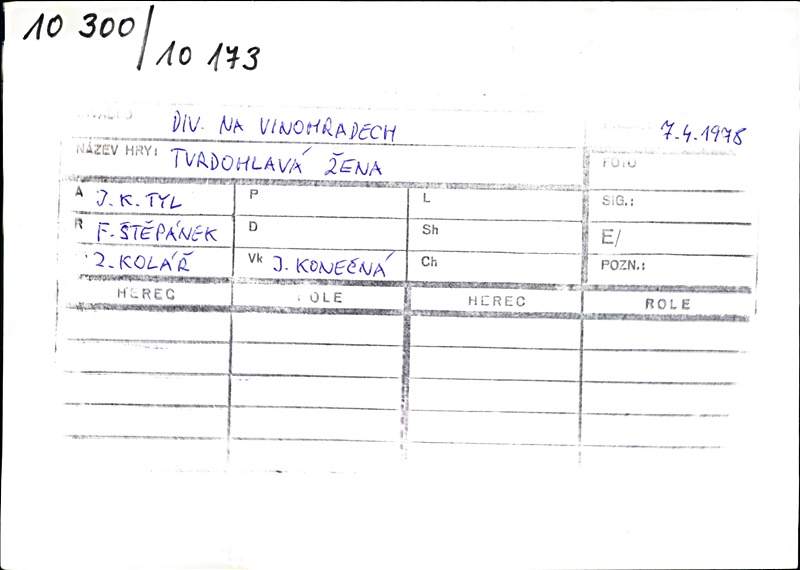 10 300/
10 173
DIV. NA VINOHRADECH 7.4.1978
NÁZEV HRY: TVRDOHLAVÁ ŽENA FOTO
A J. K. TYL P L SIG.:
R F. ŠTĚPÁNEK D Sh E/
Z. KOLÁŘ Vk J. KONEČNÁ Ch POZN.:
HEREC ROLE HEREC ROLE